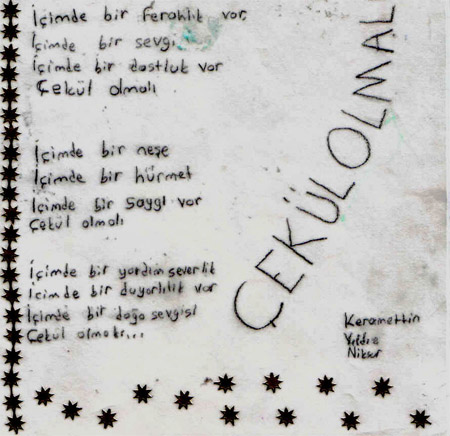 İçimde bir ferahlık var
İçimde bir sevgi
İçimde bir dostluk var
Çekül olmalı
İçimde bir neşe
İçimde bir hürmet
İçimde bir saygı var
Çekül olmalı
İçimde bir yardım severlik
İçimde bir duyarlılık var
İçimde bir doğa sevgisi
Çekül olmalı...
ÇEKÜL OLMAL
Keramettin
Yıldız
Niksar